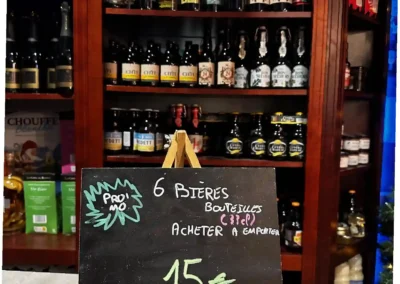 CHOUFFE
PROMO
6 BIÈRES
BOUTEILLES
(33cl)
ACHETER A EMPORTER
15€